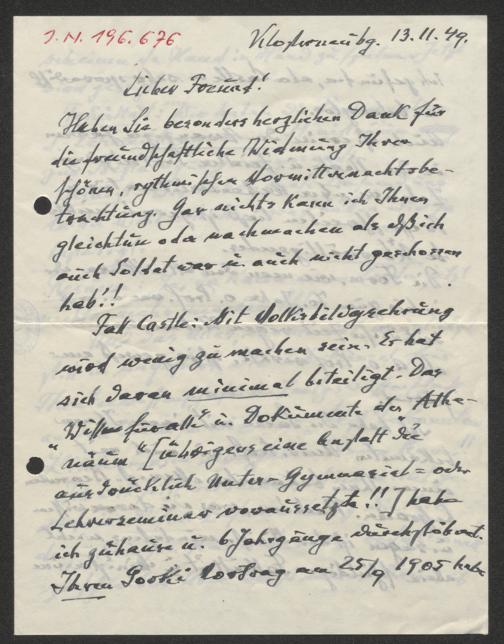 I.N. 196.676
Klosterneubg. 13.11.49.
Lieber Freund!
Haben Sie besonders herzlichen Dank für
die freundschaftliche Widmung Ihrer
schönen, rythmischen Vormitternachtsbe-
trachtung. Gar nichts kann ich Ihnen
gleichtun oder nachmachen als daß ich
auch Soldat war u. auch nicht geschossen
hab'!!
Fall Castle: Mit Volksbildgsehrung
wird wenig zu machen sein. Er hat
sich daran minimal beteiligt. Das
"Wissen für alle" u. Dokumente des "Athe-
näum" [übrigens eine Anstalt die
ausdrücklich Unter-Gymnasial= oder
Lehrerseminar voraussetzte!!] habe
ich zuhause u. 6 Jahrgänge durchstöbert.
Ihren Gorki Vortrag am 25/9 1905 habe